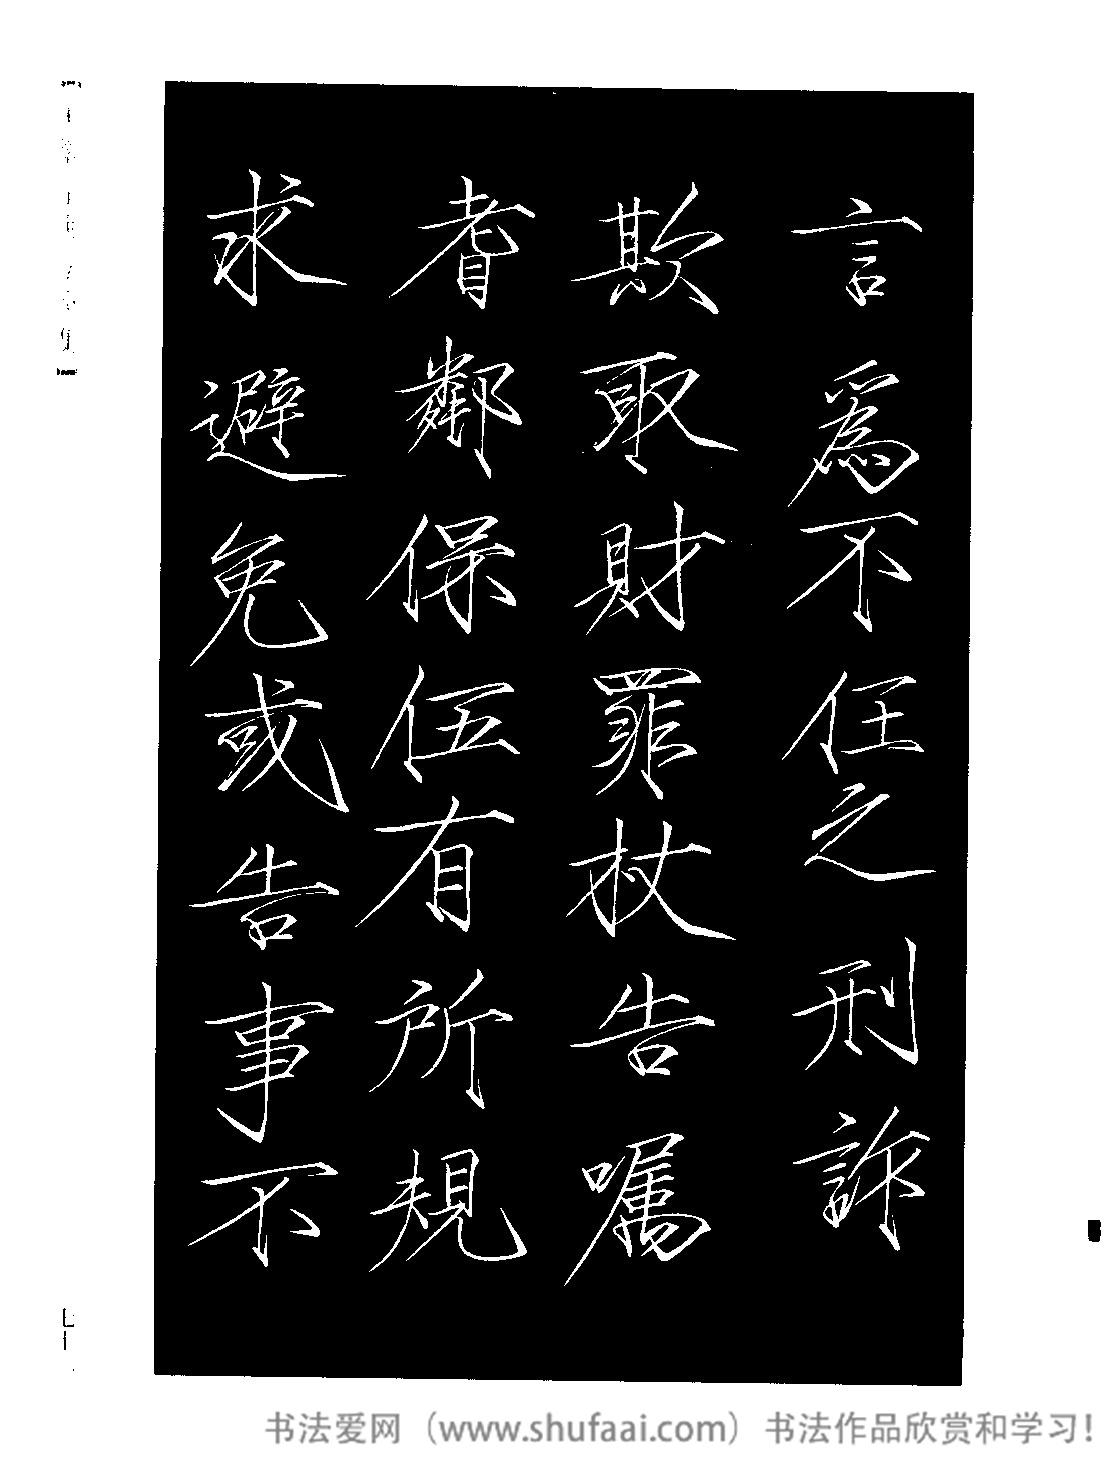 言為不任之刑詐
欺取財罪杖告囑
耆鄰保伍有所規
求避免或告事不
七
书法爱网（www.shufaai.com）书法作品欣赏和学习！